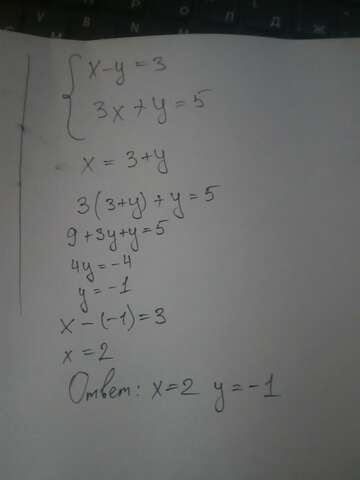 x-y=3
3x+y=5
x=3+y
3(3+y)+y=5
9+3y+y=5
4y=-4
y=-1
x-(-1)=3
x=2
Ответ: x=2 y=-1